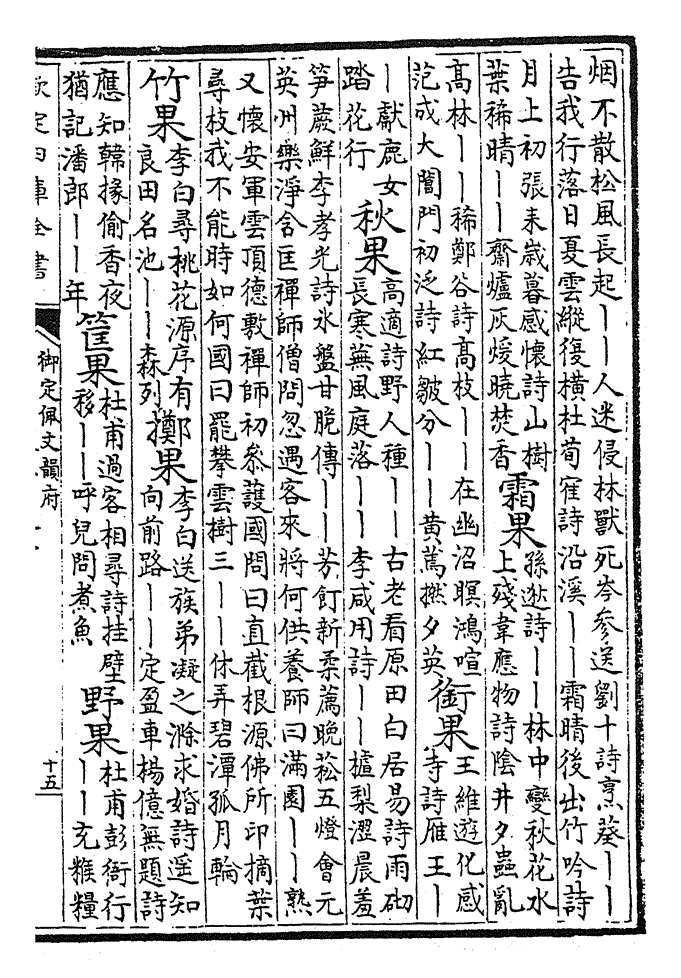 烟不散松風長起丨丨人迷侵林獸死岑參送劉十詩烹葵丨丨
告我行落日憂雲縱復橫杜荀隺詩沿溪丨丨霜晴後出竹吟詩
月上初張耒歳暮感懷詩山樹
葉稀晴丨丨齋爐灰煖曉焚香
霜果
孫逖詩丨丨林中變秋花水
上殘韋應物詩陰井夕蟲亂
高林丨丨稀鄭谷詩高枝丨丨在幽沼暝鴻喧
范成大閶門初泛詩紅皺分丨丨黃蔫撚夕英
銜果
王維遊化感
寺詩雁王丨
丨獻鹿女
踏花行
秋果
高適詩野人種丨丨古老看原田白居易詩雨砌
長寒蕪風庭落丨丨李咸用詩丨丨樝梨澀晨羞
笋蕨鮮李孝光詩氷盤甘脆傳丨丨芳飣新柔薦晚菘五燈會元
英州樂淨含匡禪師僧問忽遇客來將何供養師曰滿園丨丨熟
又懷安軍雲頂德敷禪師初參護國問曰直截根源佛所印摘葉
尋枝我不能時如何國曰罷攀雲樹三丨丨休弄碧潭孤月輪
竹果
李白尋桃花源序有
良田名池丨丨森列
擲果
李白送族弟凝之滁求婚詩遥知
向前路丨丨定盈車楊億無題詩
應知韓掾偷香夜
猶記潘郎丨丨年
筐果
杜甫過客相尋詩挂壁
移丨丨呼兒問煮魚
野果
杜甫彭衙行
丨丨充糇糧
欽定四庫全書
御定佩文韻府
十五